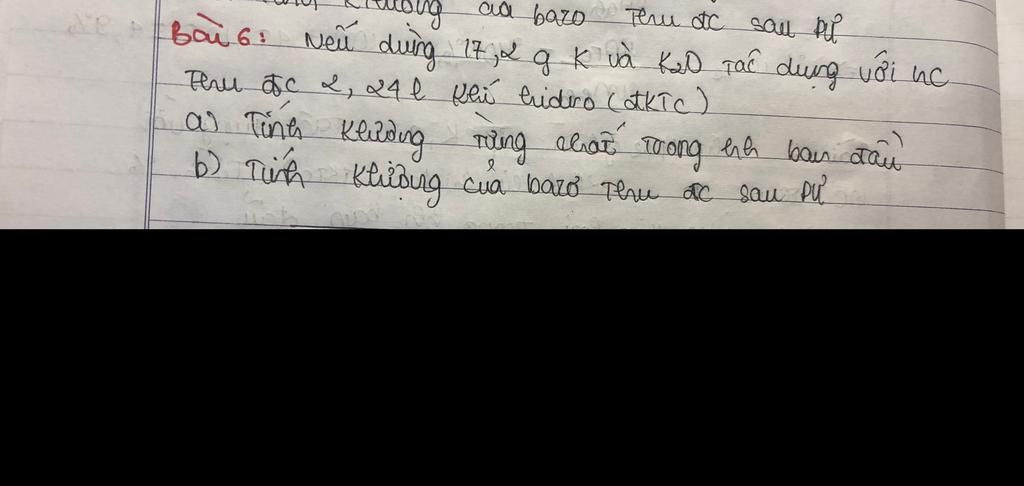 của bazo thu đc sau PƯ
Bài 6: Nếu dùng 17,2 g K và K2O Tác dụng với nc
Thu đc 2,24 l khí hidro (đKTC)
a) Tính Khlượng Từng chất Trong hh ban đầu
b) Tính Khlượng của bazơ Thu đc sau PƯ